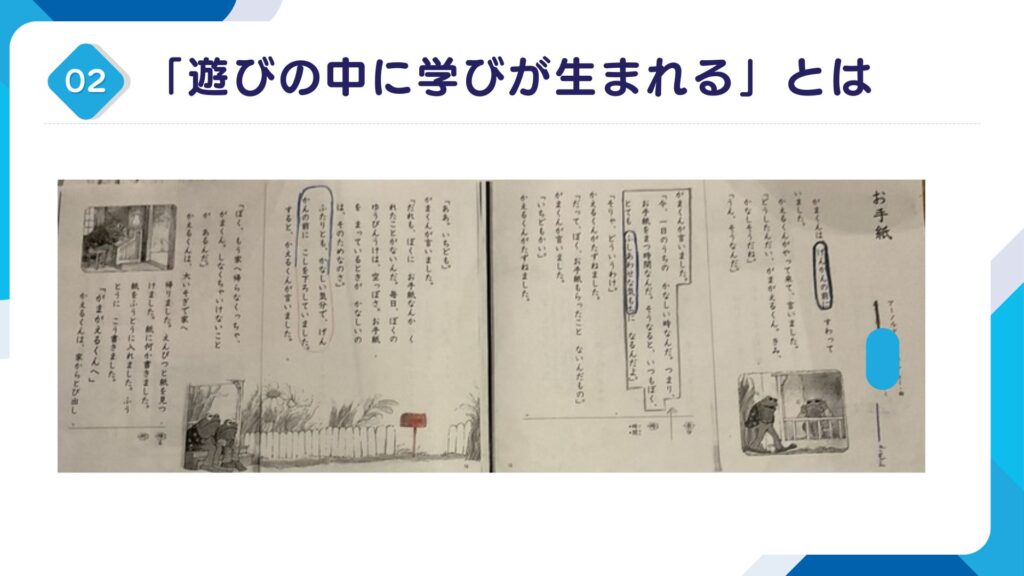 02
「遊びの中に学びが生まれる」とは
お手紙
がまくんは、げんかんの前に すわって
いました。
かえるくんがやって来て、言いました。
「どうしたんだい、がまがえるくん。きみ、
かなしそうだね。」
「うん、そうなんだ。」
がまくんが言いました。
「今、一日のうちの かなしい時なんだ。つまり、
お手紙をまつ時間なんだ。そうなると、いつもぼく、
とても ふしあわせな気もちに なるんだよ。」
「そりゃ、どういうわけ。」
かえるくんがたずねました。
「だって、ぼく、お手紙もらったこと ないんだもの。」
がまくんが言いました。
「いちどもかい。」
かえるくんがたずねました。
「ああ。いちども。」
がまくんが言いました。
「だれも、ぼくに お手紙なんか く
れたことがないんだ。毎日、ぼくの
ゆうびんうけは、空っぽさ。お手紙
を まっているときが かなしいの
は、そのためなのさ。」
ふたりとも、かなしい気分で、げん
かんの前に こしを下ろしていました。
すると、かえるくんが言いました。
「ぼく、もう家へ帰らなくっちゃ、
がまくん。しなくちゃいけないこと
が あるんだ。」
かえるくんは、大いそぎで家へ
帰りました。えんぴつと紙を見つ
けました。紙に何か書きました。
紙をふうとうに入れました。ふう
とうに こう書きました。
「がまがえるくんへ」
かえるくんは、家からとび出し